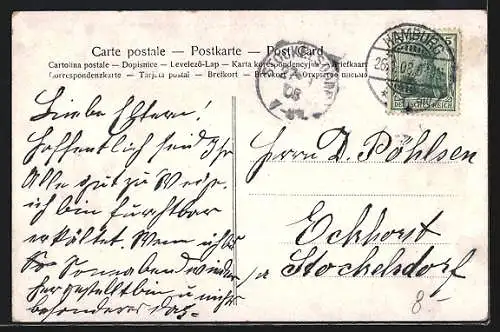 Carte postale — Postkarte — Post Card
Cartolina postale – Dopisnice – Levelező-Lap – Karta korespondencyjna – Briefkaart
Correspondenzkarte – Tarjeta postal – Brefkort – Brevkort – Открытое письмо
HAMBURG
DEUTSCHES REICH
Liebe Eltern!
Hoffentlich seid Ihr
Alle gut zu Wege,
ich bin furchtbar
erkältet. Wenn ich bis
Sonnabend wieder
hergestellt bin u nichts
besonderes das
Herrn D. Pöhlsen
Eckhorst
Stockelsdorf
8-